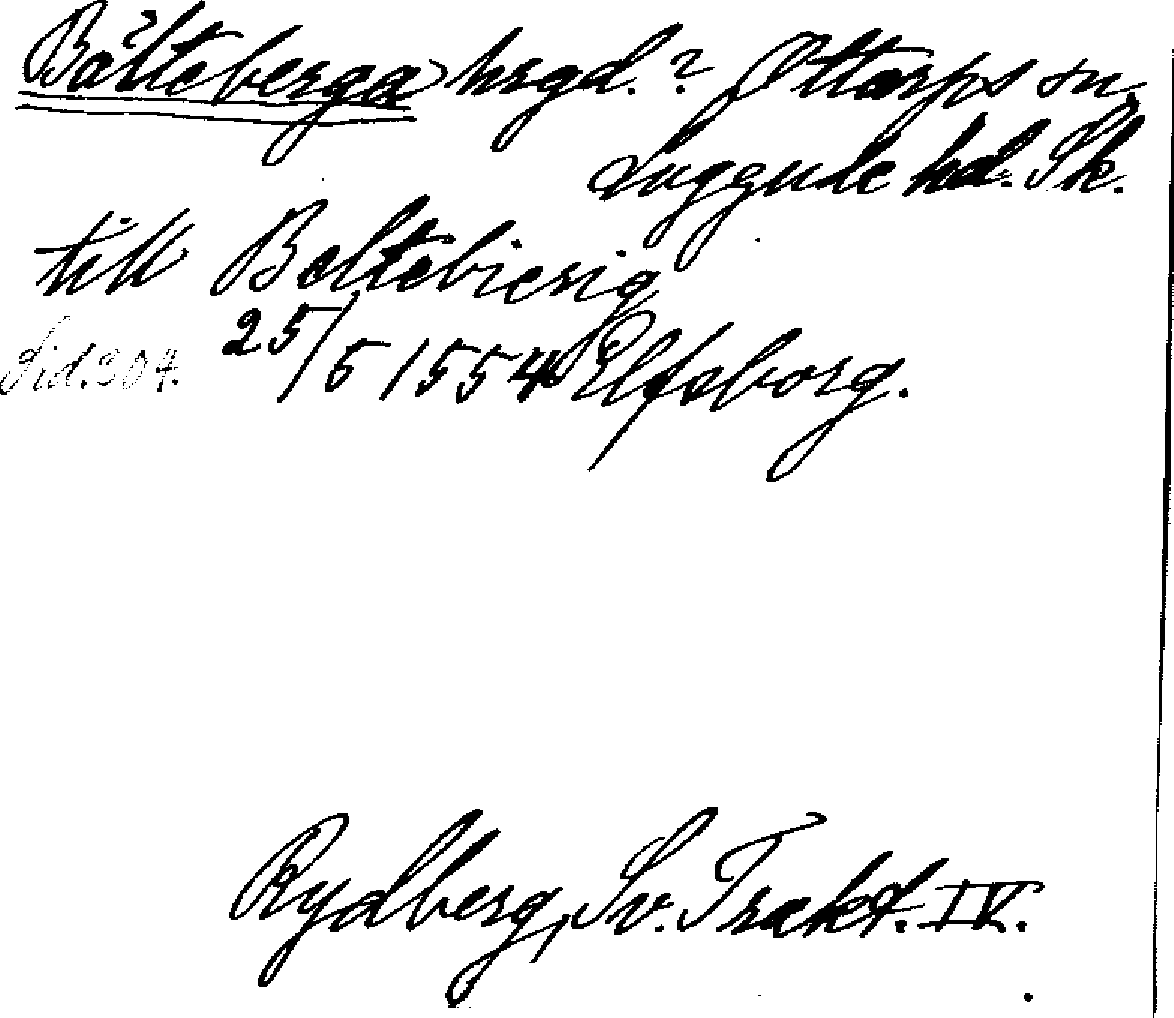 Bälteberga hrgd.? Ottarps sn,
Luggude hd. Sk.
till Beltebierig
Sid. 304. 25/5 1554 Elfsborg.
Rydberg, Sv. Trakt. IV.